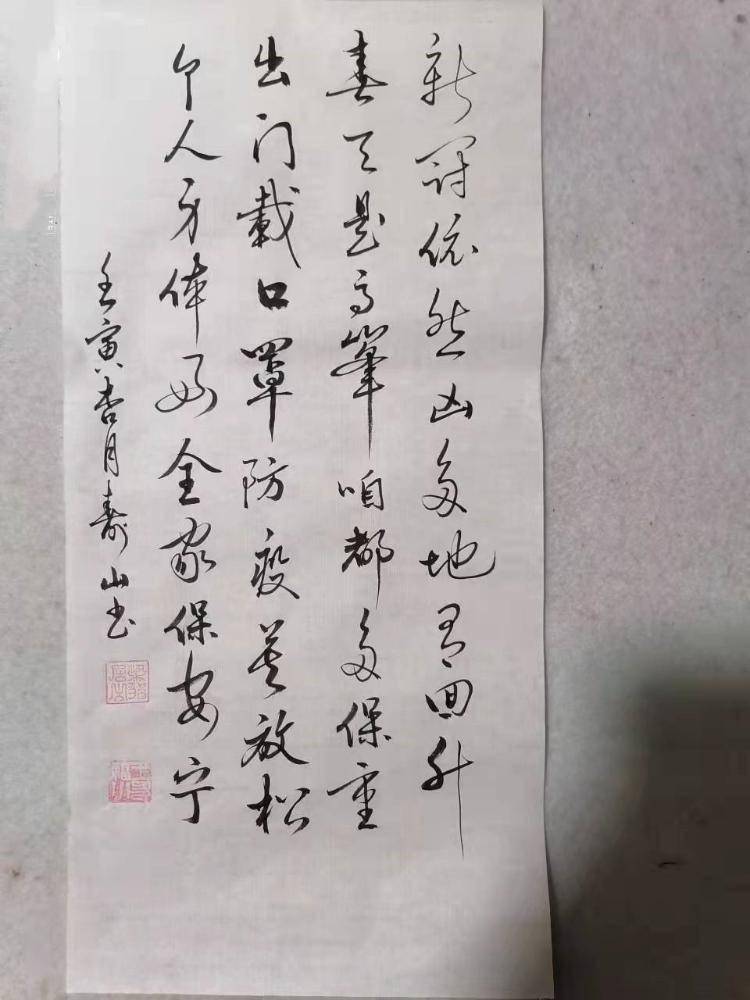 新冠依然凶多地有回升
春天是高峯咱都多保重
出门載口罩防疫莫放松
个人身体好全家保安宁
壬寅杏月寿山书